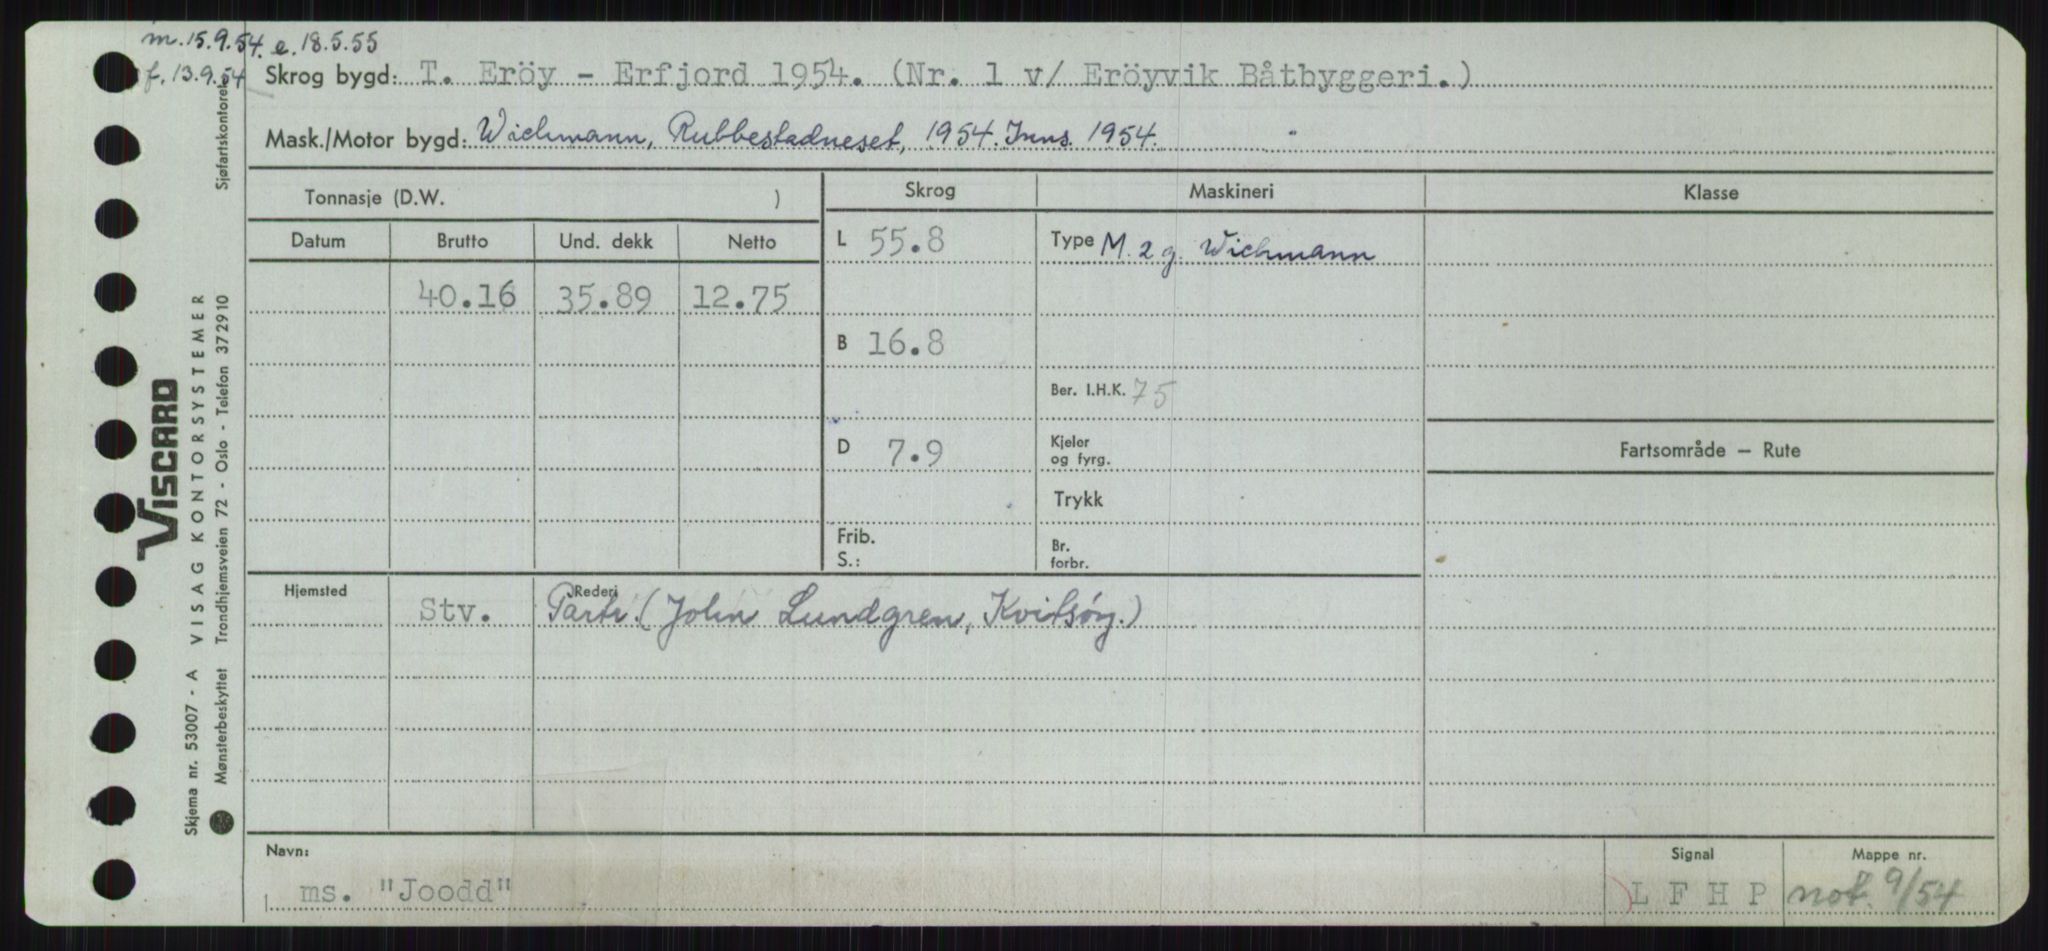 m. 15.9.54. e. 18.5.55
f. 13.9.54
Skrog bygd: T. Eröy - Erfjord 1954. (Nr. 1 v/ Eröyvik Båtbyggeri.)
Mask./Motor bygd: Wichmann, Rubbestadneset, 1954. Inns. 1954.
Tonnasje (D.W. )
Skrog
Maskineri
Klasse
Datum
Brutto
Und. dekk
Netto
40.16
35.89
12.75
L 55.8
B 16.8
D 7.9
Frib.
S.:
Type M. 2 g. Wichmann
Ber. I.H.K. 75
Kjeler
og fyrg.
Trykk
Br.
forbr.
Fartsområde — Rute
Hjemsted
Stv.
Rederi
Partr. (John Lundgren, Kvitsöy.)
Navn:
ms. "Joodd"
Signal
L F H P
Mappe nr.
not. 9/54
Sjøfartskontoret
VISCARD
VISAG KONTORSYSTEMER
Trondhjemsveien 72 - Oslo - Telefon 372910
Skjema nr. 53007 - A
Mønsterbeskyttet